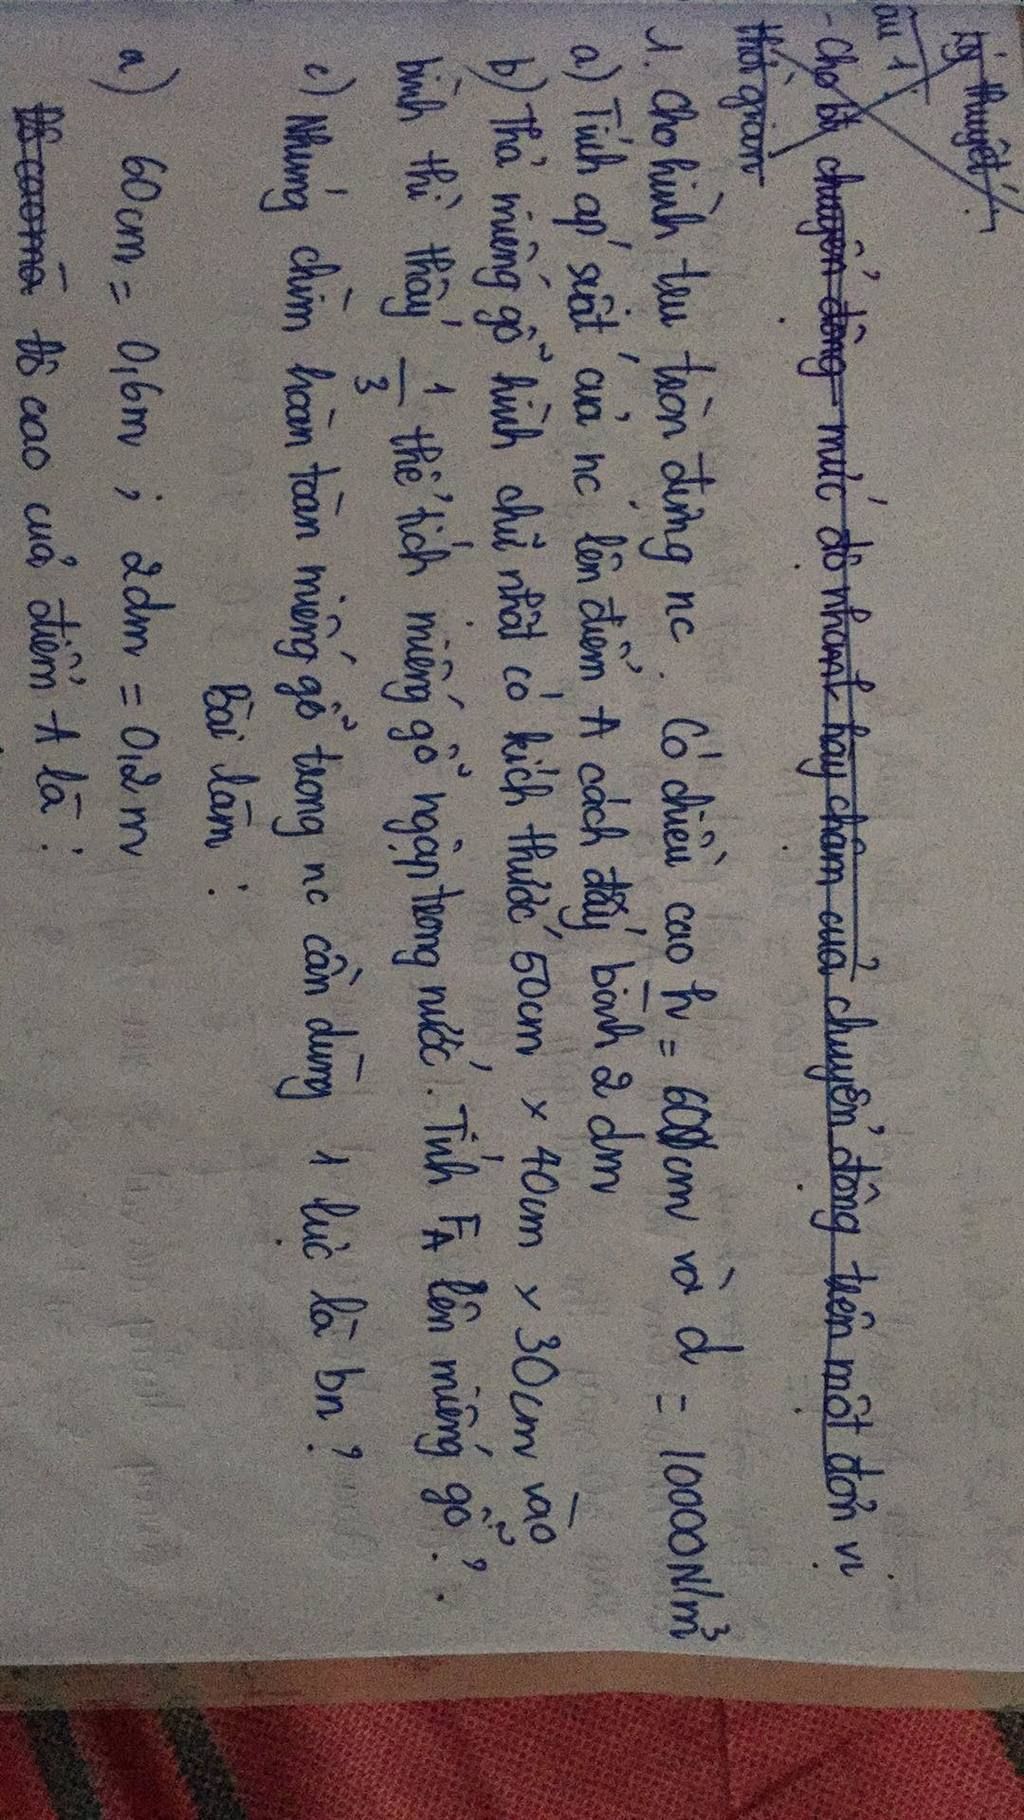 Lý thuyết
Câu 1.
- Cho bt chuyển động mức độ nhanh hay chậm của chuyển động trên một đơn vị
thời gian
1. Cho hình trụ tròn đựng nc. Có chiều cao h = 60cm và d = 10000N/m³
a) Tính áp suất của nc lên điểm A cách đấy bình 2dm
b) Thả miếng gỗ hình chữ nhật có kích thước 50cm x 40cm x 30cm vào
bình thì thấy 1/3 thể tích miếng gỗ ngập trong nước. Tính FA lên miếng gỗ?
c) Nhúng chìm hoàn toàn miếng gỗ trong nc cần dùng 1 lực là bn?
Bài làm:
a) 60cm = 0,6m ; 2dm = 0,2m
Độ cao của điểm A là: